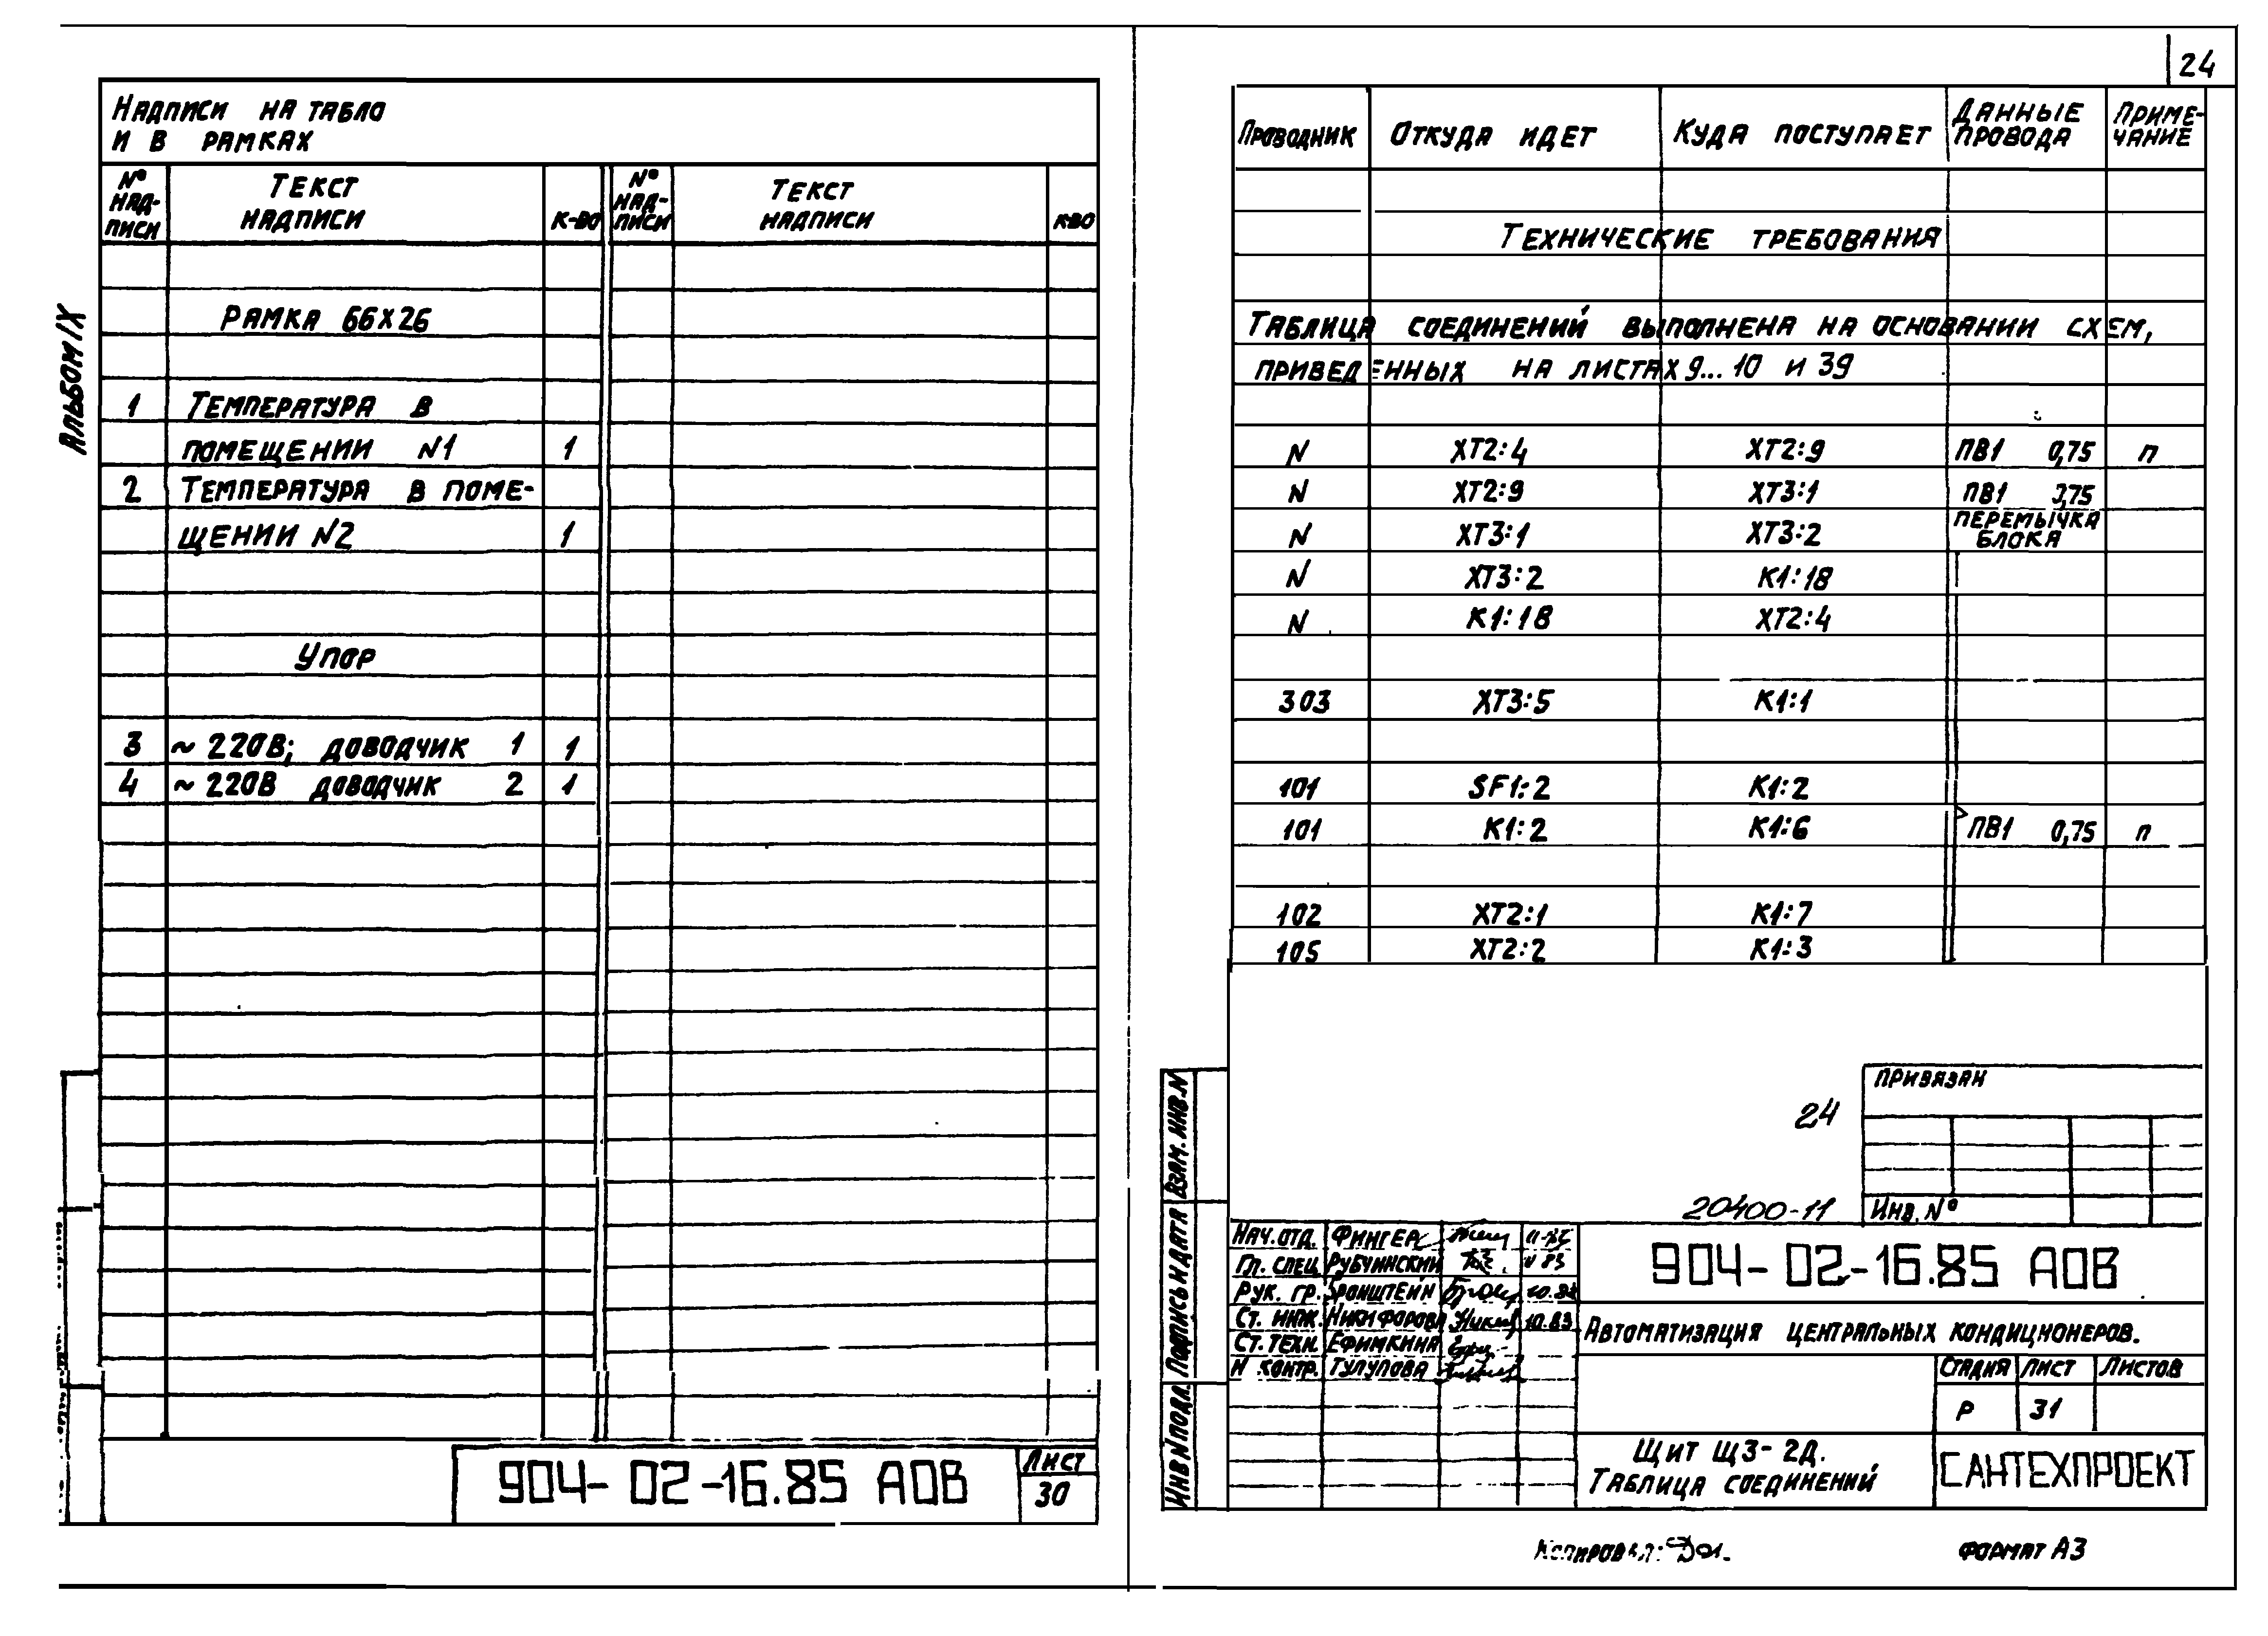 24
Альбом IX
Надписи на табло
и в рамках
№ надписи Текст надписи к-во № надписи Текст надписи кво
Рамка 66х26
1 Температура в
помещении N1 1
2 Температура в поме-
щении N2 1
Упор
3 ~220В; доводчик 1 1
4 ~220В доводчик 2 1
904-02-16.85 АОВ
Лист
30
Проводник Откуда идет Куда поступает Данные провода Приме-чание
Технические требования
Таблица соединений выполнена на основании схем,
приведенных на листах 9...10 и 39
N ХТ2:4 ХТ2:9 ПВ1 0,75 п
N ХТ2:9 ХТ3:1 ПВ1 0,75
N ХТ3:1 ХТ3:2 перемычка блока
N ХТ3:2 К1:18
N К1:18 ХТ2:4
303 ХТ3:5 К1:1
101 SF1:2 К1:2
101 К1:2 К1:6 ПВ1 0,75 п
102 ХТ2:1 К1:7
105 ХТ2:2 К1:3
Привязан
24
20400-11
Инв. №
Взам. инв. N
Подпись и дата
Инв N подл.
Нач. отд. Фингер
Гл. спец Рубчинский
Рук. гр. Бронштейн
Ст. инж. Никифорова 10.83
Ст. техн. Ефимкина
Н контр. Тулупова
904-02-16.85 АОВ
Автоматизация центральных кондиционеров.
Стадия Лист Листов
Р 31
Щит Щ3-2Д.
Таблица соединений
САНТЕХПРОЕКТ
Копировал:
Формат А3